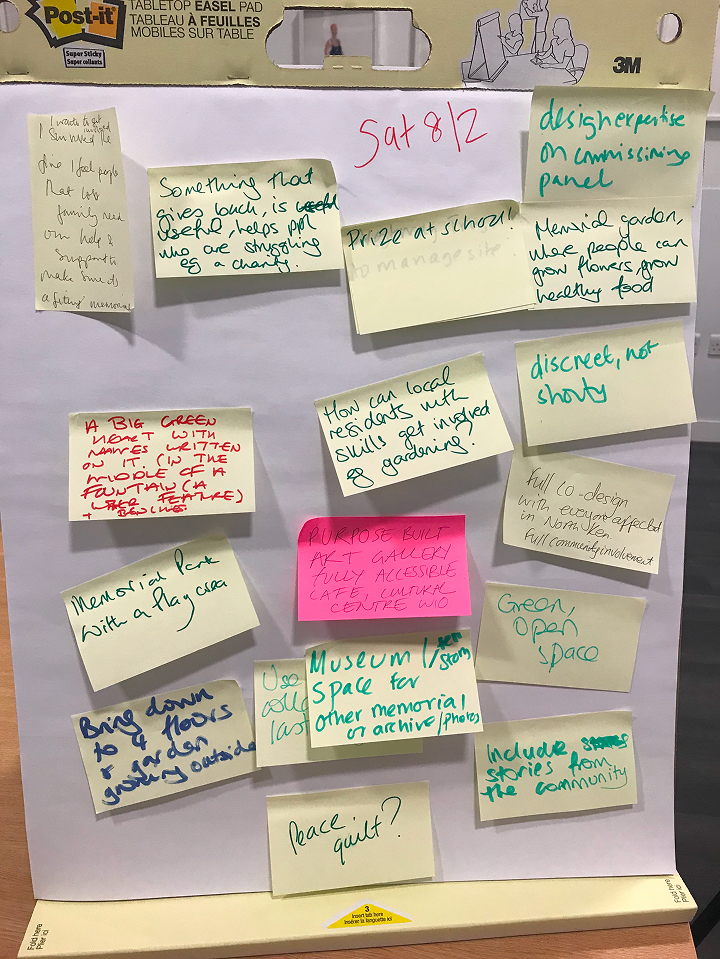 Post-it
Super Sticky
Super collants
TABLETOP EASEL PAD
TABLEAU À FEUILLES
MOBILES SUR TABLE
3M
Sat 8/2
I want to get
involved
I survived the
fire I feel people
That lost
family need
our help &
support to
make sure its
a fitting memorial
Something that
gives back, is
useful, helps ppl
who are struggling
eg a charity.
Prize at school!
to manage site
design expertise
on commissioning
panel
Memorial garden,
where people can
grow flowers, grow
healthy food
discreet, not
showty
How can local
residents with
skills get involved
eg gardening?
A BIG GREEN
HEART WITH
NAMES WRITTEN
ON IT. (IN THE
MIDDLE OF A
FOUNTAIN (A
WATER FEATURE)
+ BENCHES
Full co-design
with everyone affected
in North Ken.
Full community involvement
PURPOSE BUILT
ART GALLERY
FULLY ACCESSIBLE
CAFE, CULTURAL
CENTRE
Memorial Park
with a Play area
Green,
Open
space
Use
last
Museum /
Space for
other memorial
or archive/photos
Bring down
to 4 floors
& garden
growing outside
Include
stories from
the community
Peace
quilt?
Fold here
Plier ici
3
Insert tab here
Insérer la languette ici
Fold here
Plier ici